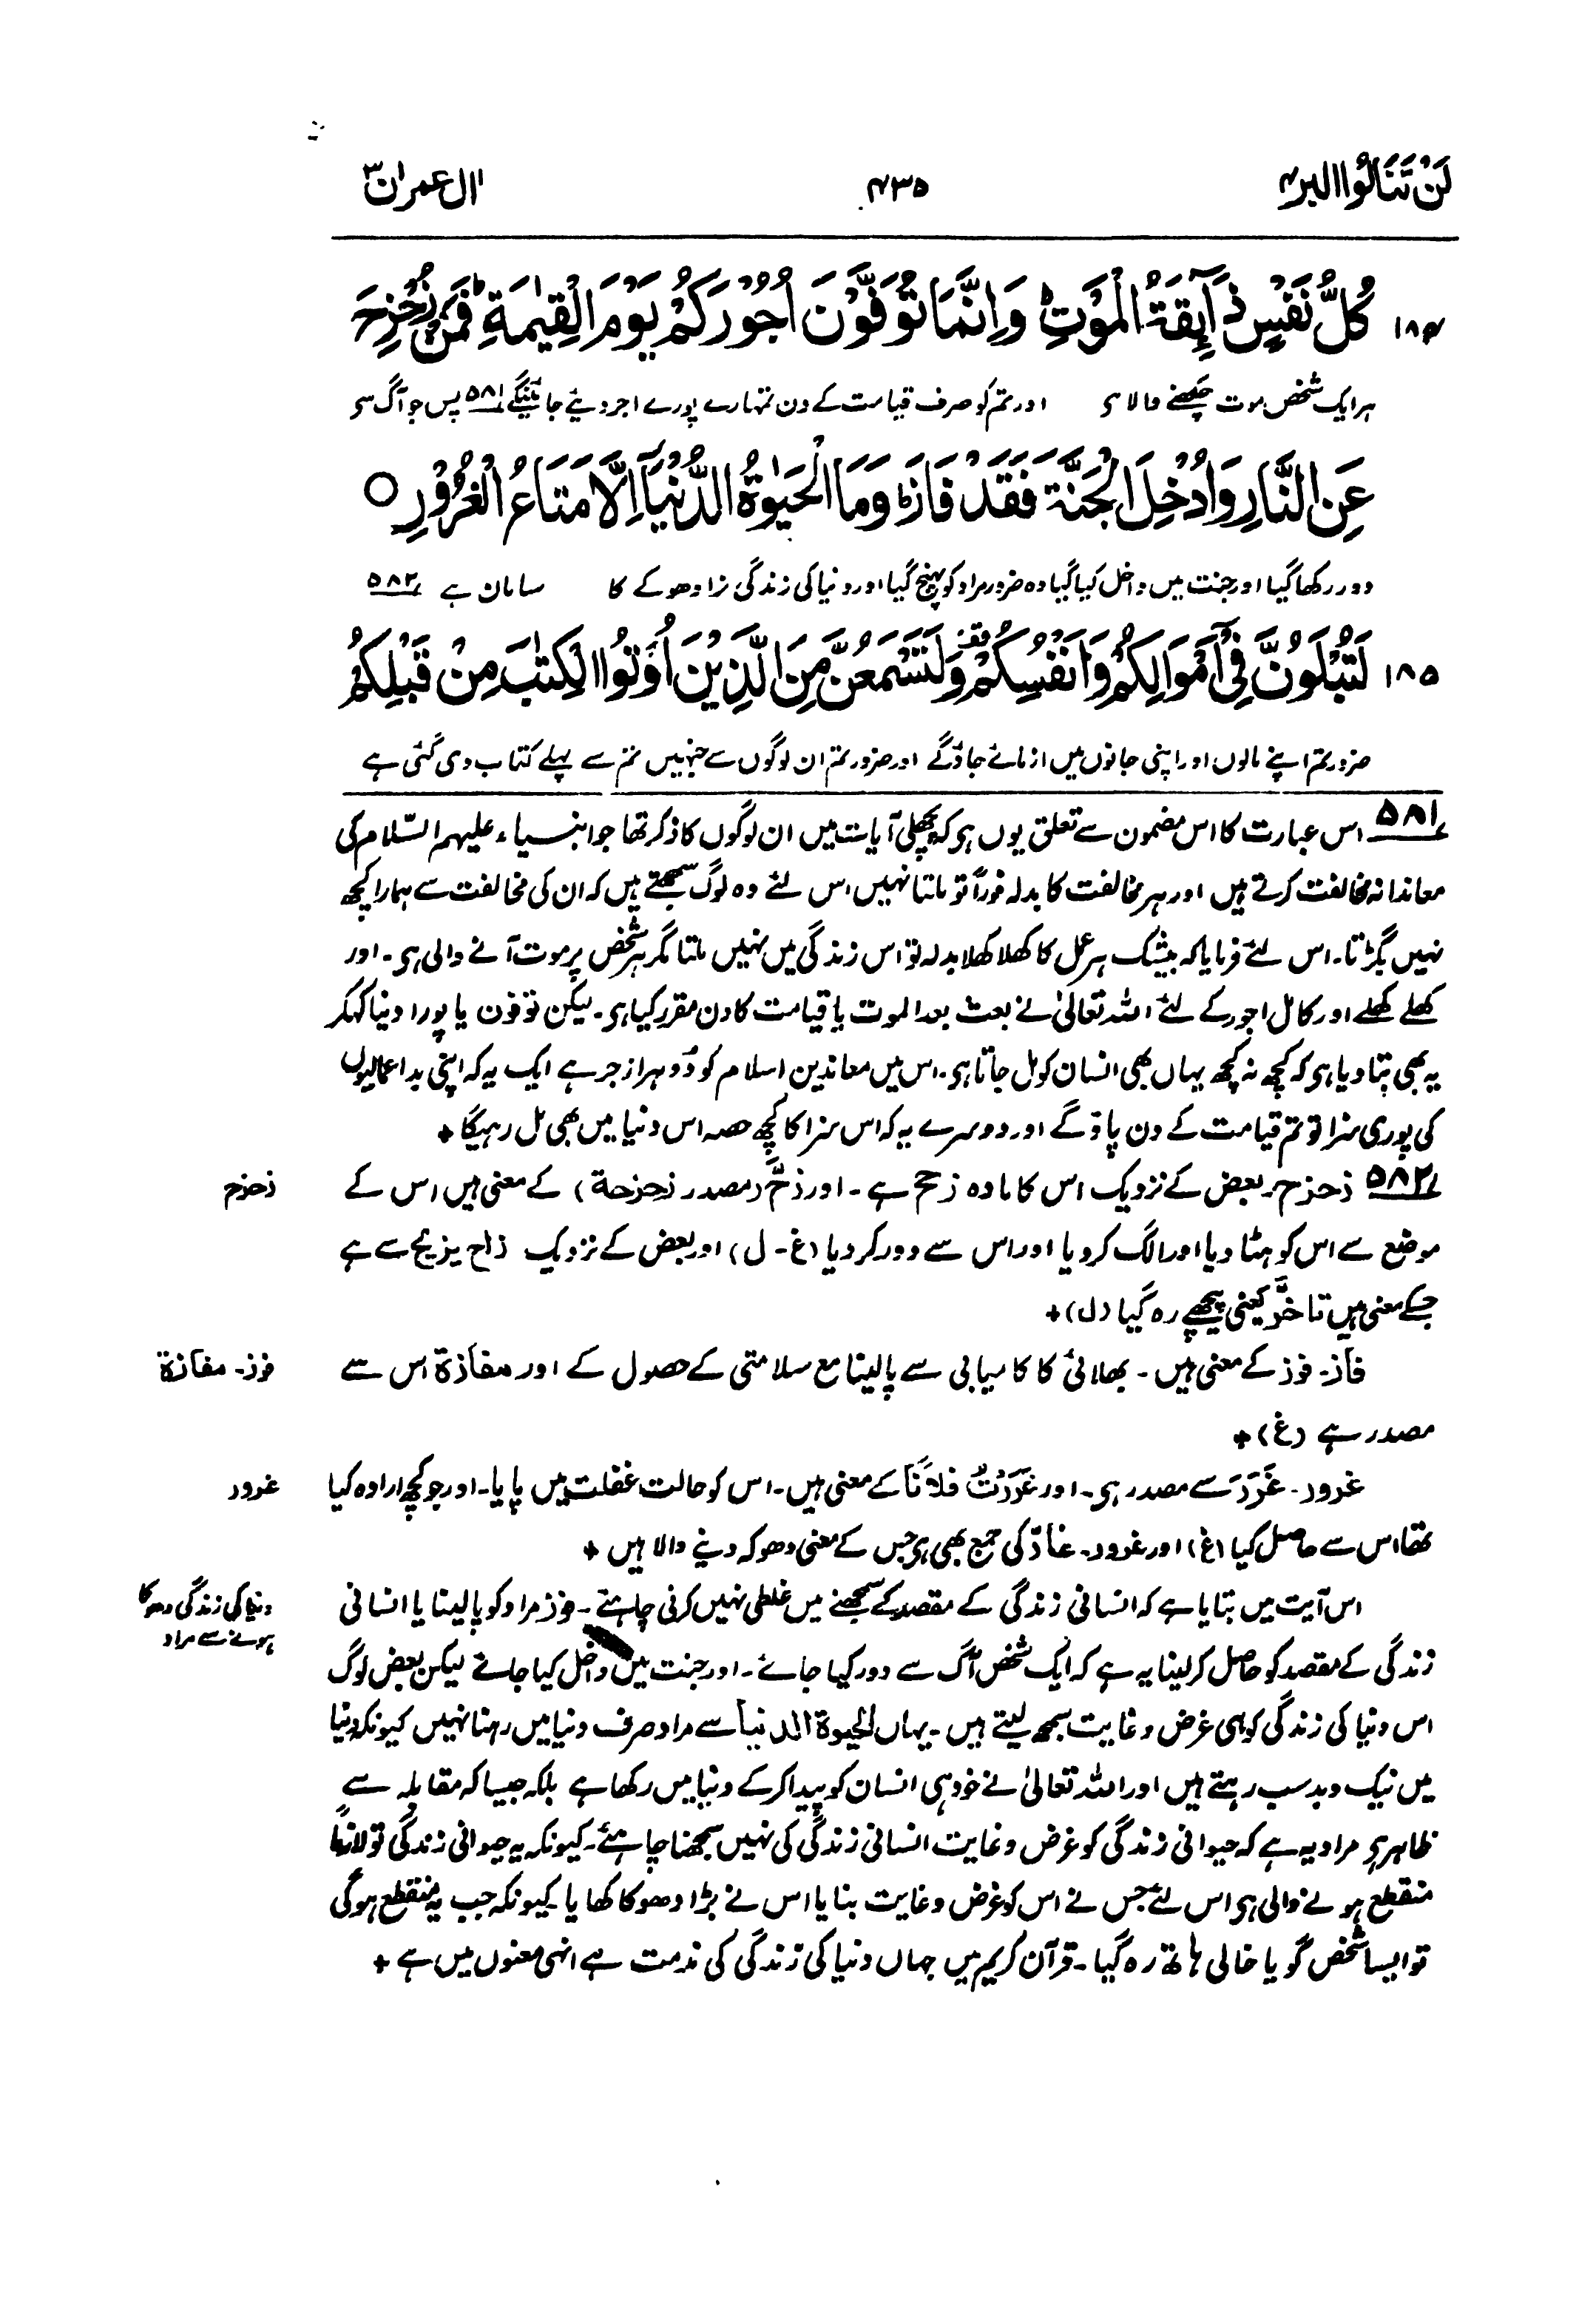 لَنْ تَنَالُوا البر۴
۴۳۵
اٰل عمران۳
۱۸۴ كُلُّ نَفْسٍ ذَآئِقَةُ الْمَوْتِ ؕ وَاِنَّمَا تُوَفَّوْنَ اُجُوْرَكُمْ يَوْمَ الْقِيٰمَةِ ؕ فَمَنْ زُحْزِحَ
ہر ایک شخص موت چکھنے والا ہی اور تم کو صرف قیامت کے دن تمہارے پورے اجر دیئے جائینگے ۵۸۱ پس جو آگ سی
عَنِ النَّارِ وَاُدْخِلَ الْجَنَّةَ فَقَدْ فَازَ ؕ وَمَا الْحَيٰوةُ الدُّنْيَآ اِلَّا مَتَاعُ الْغُرُوْرِ ○
دور رکھا گیا اور جنت میں داخل کیا گیا وہ ضرور مراد کو پہنچ گیا اور دنیا کی زندگی نرا دھوکے کا سامان ہے ۵۸۲
۱۸۵ لَتُبْلَوُنَّ فِىْٓ اَمْوَالِكُمْ وَاَنْفُسِكُمْ وقفۃ وَلَتَسْمَعُنَّ مِنَ الَّذِيْنَ اُوْتُوا الْكِتٰبَ مِنْ قَبْلِكُمْ
ضرور تم اپنے مالوں اور اپنی جانوں میں آزمائے جاؤگے اور ضرور تم ان لوگوں سے جنہیں تم سے پہلے کتاب دی گئی ہے
۵۸۱ اس عبارت کا اس مضمون سے تعلق یوں ہی کہ پچھلی آیات میں ان لوگوں کا ذکر تھا جو انبیاء علیہم السّلام کی
معاندانہ مخالفت کرتے ہیں اور ہر مخالفت کا بدلہ فوراً تو ملتا نہیں اس لئے وہ لوگ سمجھتے ہیں کہ ان کی مخالفت سے ہمارا کچھ
نہیں بگڑتا۔ اس لئے فرمایا کہ بیشک ہر عمل کا کھلا کھلا بدلہ تو اس زندگی میں نہیں ملتا مگر ہر شخص پر موت آنے والی ہی۔ اور
کھلے کھلے اور کامل اجور کے لئے اللہ تعالیٰ نے بعث بعد الموت یا قیامت کا دن مقرر کیا ہی۔ لیکن توفون یا پورا دنیا کہکر
یہ بھی بتا دیا ہی کہ کچھ نہ کچھ یہاں بھی انسان کو مل جاتا ہی۔ اس میں معاندین اسلام کو دوہرا زجر ہے ایک یہ کہ اپنی بداعمالیوں
کی پوری سزا تو تم قیامت کے دن پاؤ گے اور دوسرے یہ کہ اس سزا کا کچھ حصہ اس دنیا میں بھی مل رہیگا +
۵۸۲ زحزح۔ بعض کے نزدیک اس کا مادہ زحح ہے۔ اور زَحَّ (مصدر زحزحة) کے معنی ہیں اس کے
زحزح
موضع سے اس کو ہٹا دیا اور الگ کر دیا اور اس سے دور کر دیا (غ۔ ل) اور بعض کے نزدیک زاح یزیح سے ہے
جسکے معنی ہیں تاخّر یعنی پیچھے رہ گیا (ل) +
فاز۔ فوز کے معنی ہیں۔ بھلائی کا کامیابی سے پا لینا مع سلامتی کے حصول کے اور مفازة اس سے
فوز۔ مفازة
مصدر ہے (غ) +
غرور۔ غَرَرَ سے مصدر ہی۔ اور غَرَرْتُ فلانًا کے معنی ہیں۔ اس کو حالت غفلت میں پایا۔ اور جو کچھ ارادہ کیا
غرور
تھا اس سے حاصل کیا (غ) اور غرور۔ غارّ کی جمع بھی ہی جس کے معنی دھوکہ دینے والا ہیں +
اس آیت میں بتایا ہے کہ انسانی زندگی کے مقصد کے سمجھنے میں غلطی نہیں کرنی چاہئے۔ فوز مراد کو پا لینا یا انسانی
دنیا کی زندگی دھوکا
ہونے سے مراد
زندگی کے مقصد کو حاصل کر لینا یہ ہے کہ ایک شخص آگ سے دور کیا جائے۔ اور جنت میں داخل کیا جائے لیکن بعض لوگ
اس دنیا کی زندگی کو ہی غرض و غایت سمجھ لیتے ہیں۔ یہاں الحیوة الدنیا سے مراد صرف دنیا میں رہنا نہیں کیونکہ دنیا
میں نیک و بد سب رہتے ہیں اور اللہ تعالیٰ نے خود ہی انسان کو پیدا کر کے دنیا میں رکھا ہے بلکہ جیسا کہ مقابلہ سے
ظاہر ہی مراد یہ ہے کہ حیوانی زندگی کو غرض و غایت انسانی زندگی کی نہیں سمجھنا چاہئے۔ کیونکہ یہ حیوانی زندگی تو لازماً
منقطع ہونے والی ہی اس لئے جس نے اس کو غرض و غایت بنایا اس نے بڑا دھوکا کھایا۔ کیونکہ جب یہ منقطع ہوگی
تو ایسا شخص گویا خالی ہاتھ رہ گیا۔ قرآن کریم میں جہاں دنیا کی زندگی کی مذمت ہے انہی معنوں میں ہے +